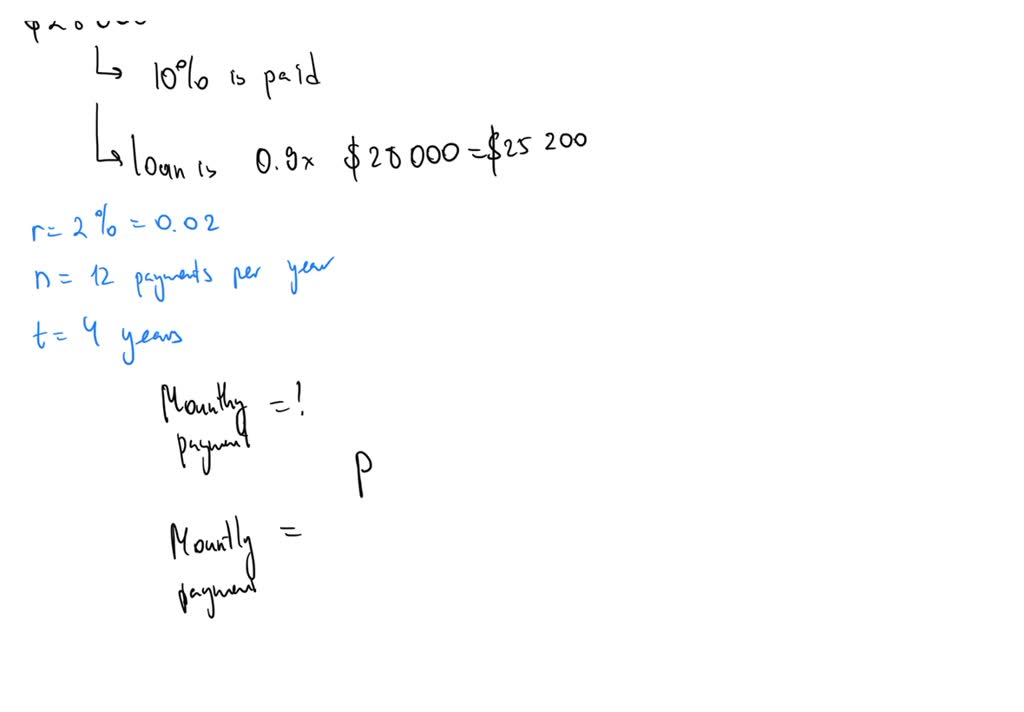 10% is paid
loan is 0.9x $28000 = $25 200
r = 2% = 0.02
n = 12 payments per year
t = 4 years
Mounthy = !
payment
P
Mountly =
payment